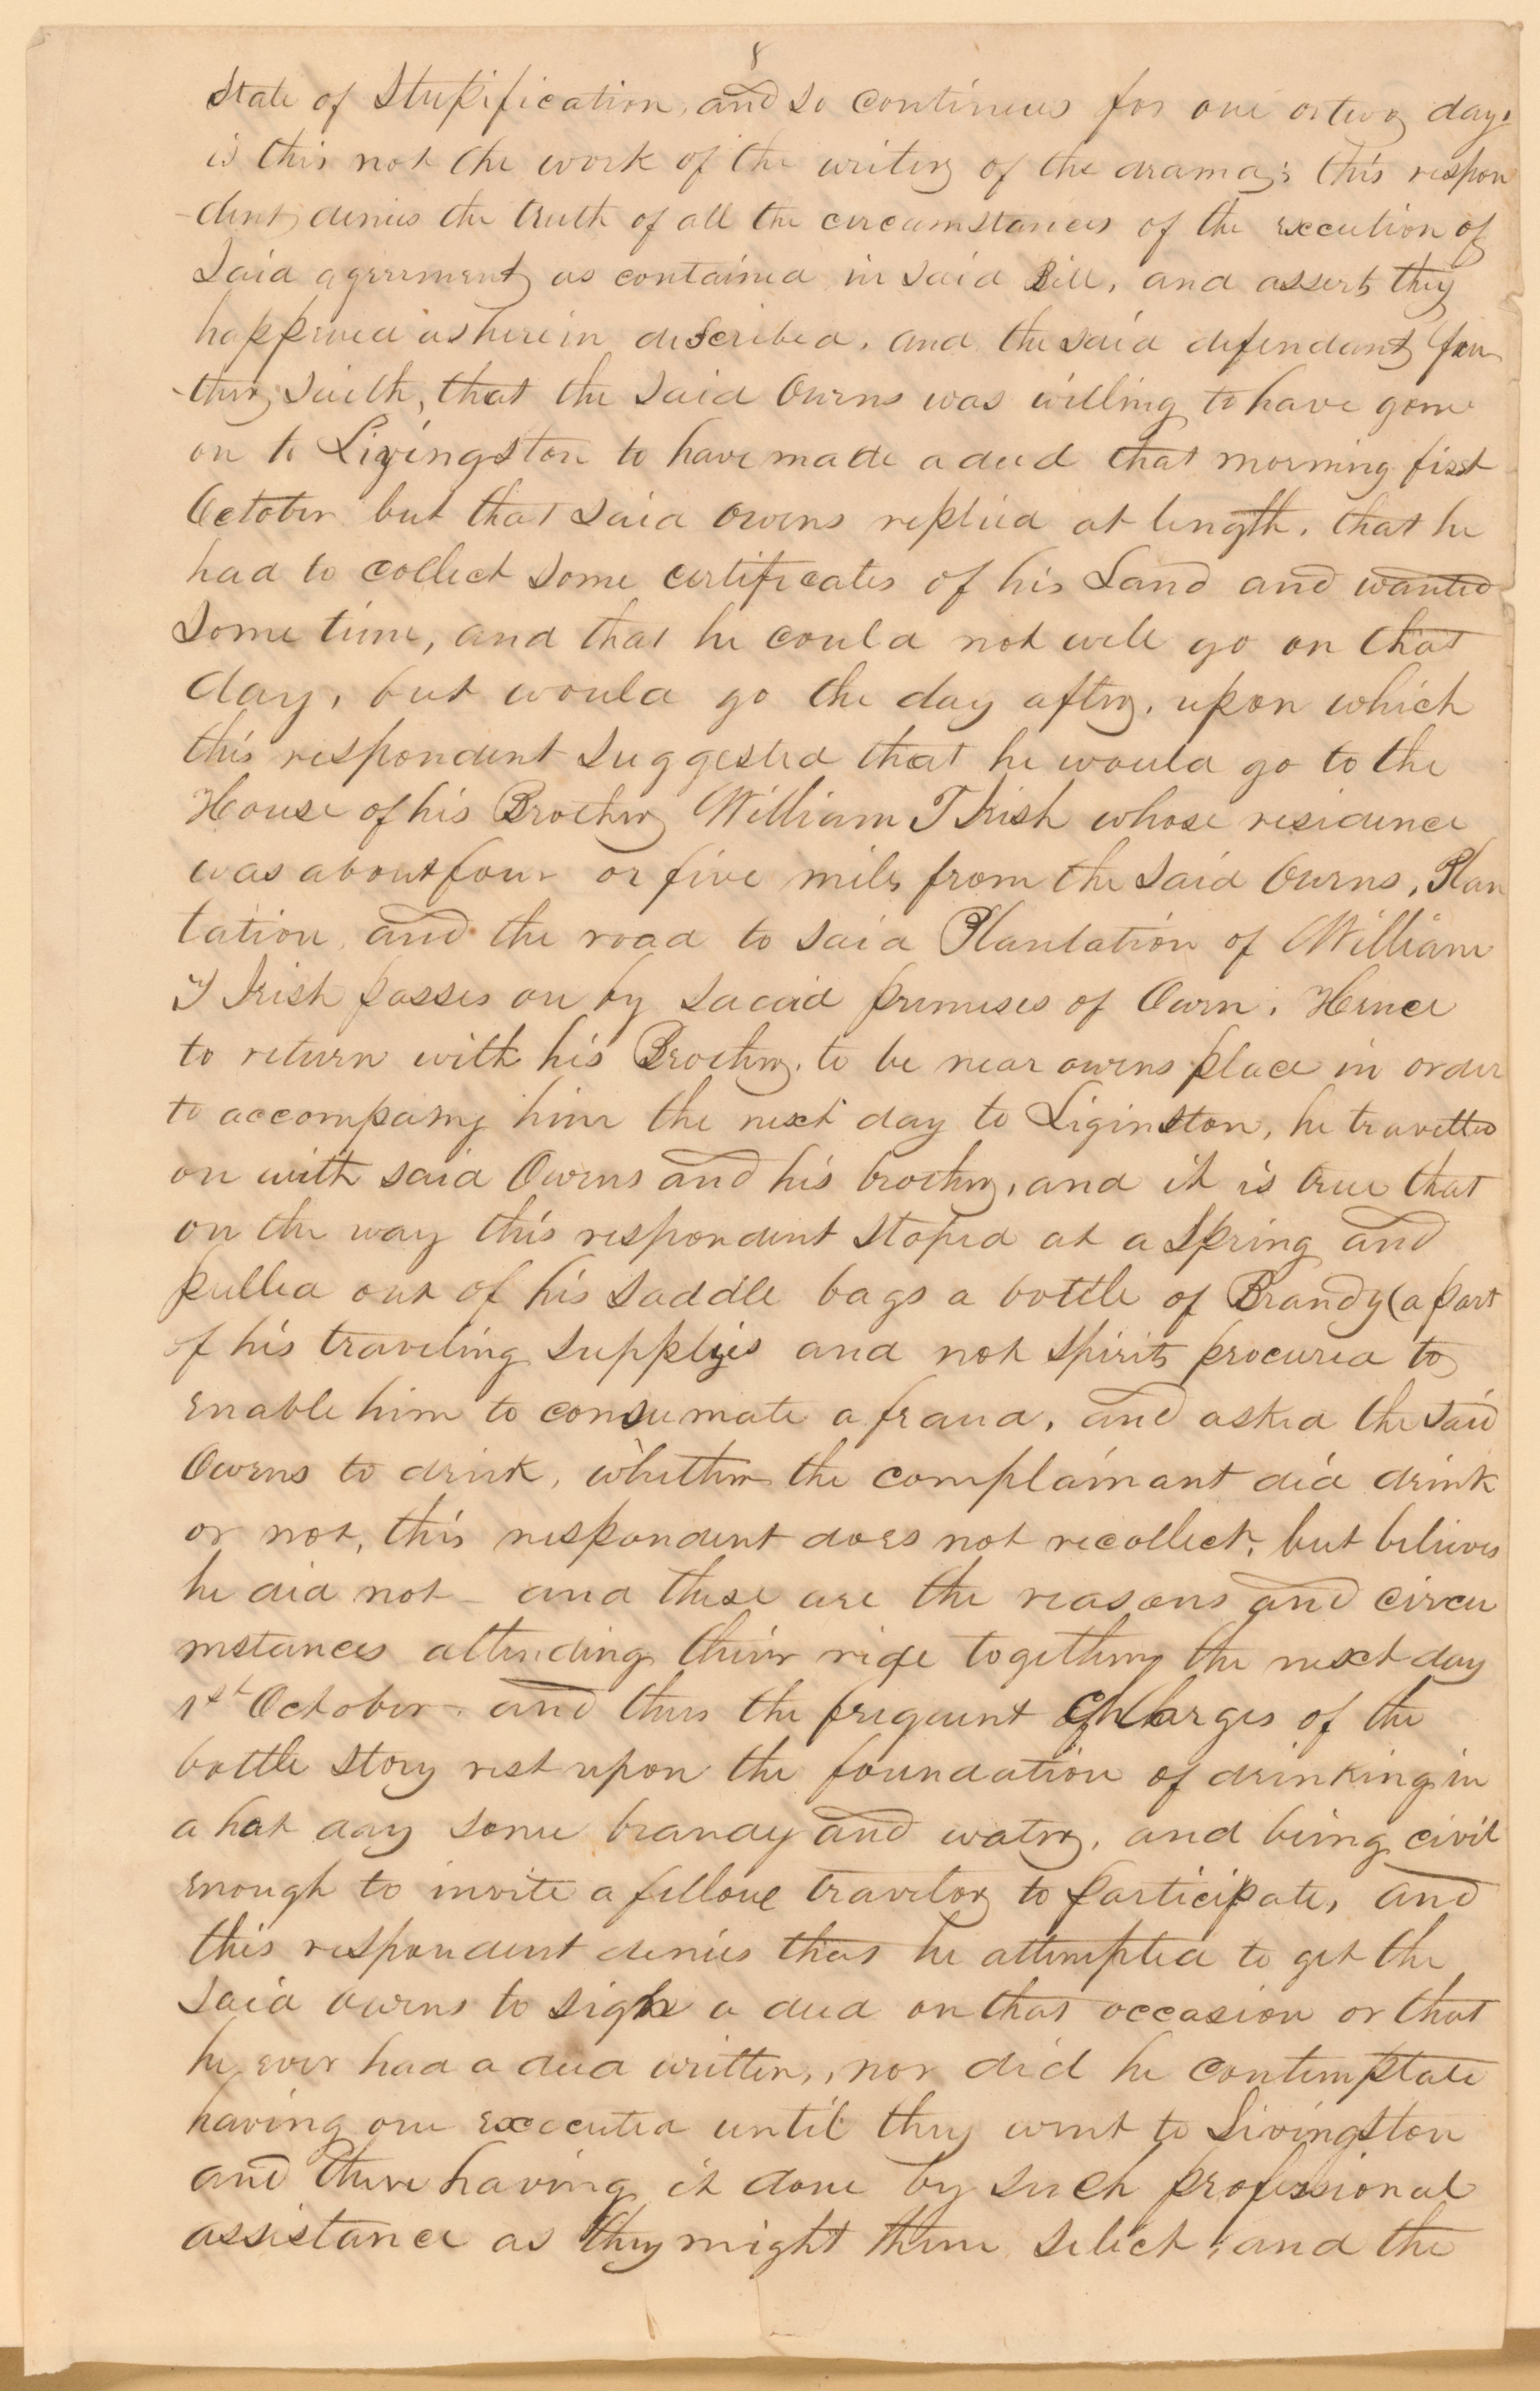 8
State of Stupification, and so continues for one or two days
is this not the work of the writer of the drama; this respon
-dent denies the truth of all the circumstances of the execution of
Said agreement as contained in said Bill, and asserts they
happened as herein described. and the said defendant fur
-ther saith, that the said Owens was willing to have gone
on to Livingston to have made a deed that morning first
October but that said Owens replied at length. that he
had to collect some certificates of his Land and wanted
Some time, and that he could not well go on that
day, but would go the day after. upon which
this respondent suggested that he would go to the
House of his Brother William T Irish whose residence
was about four or five miles from the said Owens, Plan
tation and the road to said Plantation of William
T Irish passes on by sacaid premises of Owen. Hence
to return with his Brother. to be near owens place in order
to accompany him the next day to Liginston, he travelled
on with said Owens and his brother, and it is true that
on the way this respondent stoped at a Spring and
pulled out of his saddle bags a bottle of Brandy (a part
of his traveling supplyies and not spirits procured to
enable him to consumate a fraud, and asked the said
Owens to drink, whether the complainant did drink
or not, this respondent does not recollect, but believes
he did not – and these are the reasons and circu
mstances attending their ride together the next day
1st October – and thus the frequent charges of the
bottle story rest upon the foundation of drinking in
a hot day some brandy and water, and being civil
enough to invite a fellow travelor to participate, and
this respondent denies that he attempted to get the
Said owens to sign a deed on that occasion or that
he ever had a deed written,, nor did he contemplate
having one executed until they went to Livingston
and there having it done by such professional
assistance as they might there select; and the